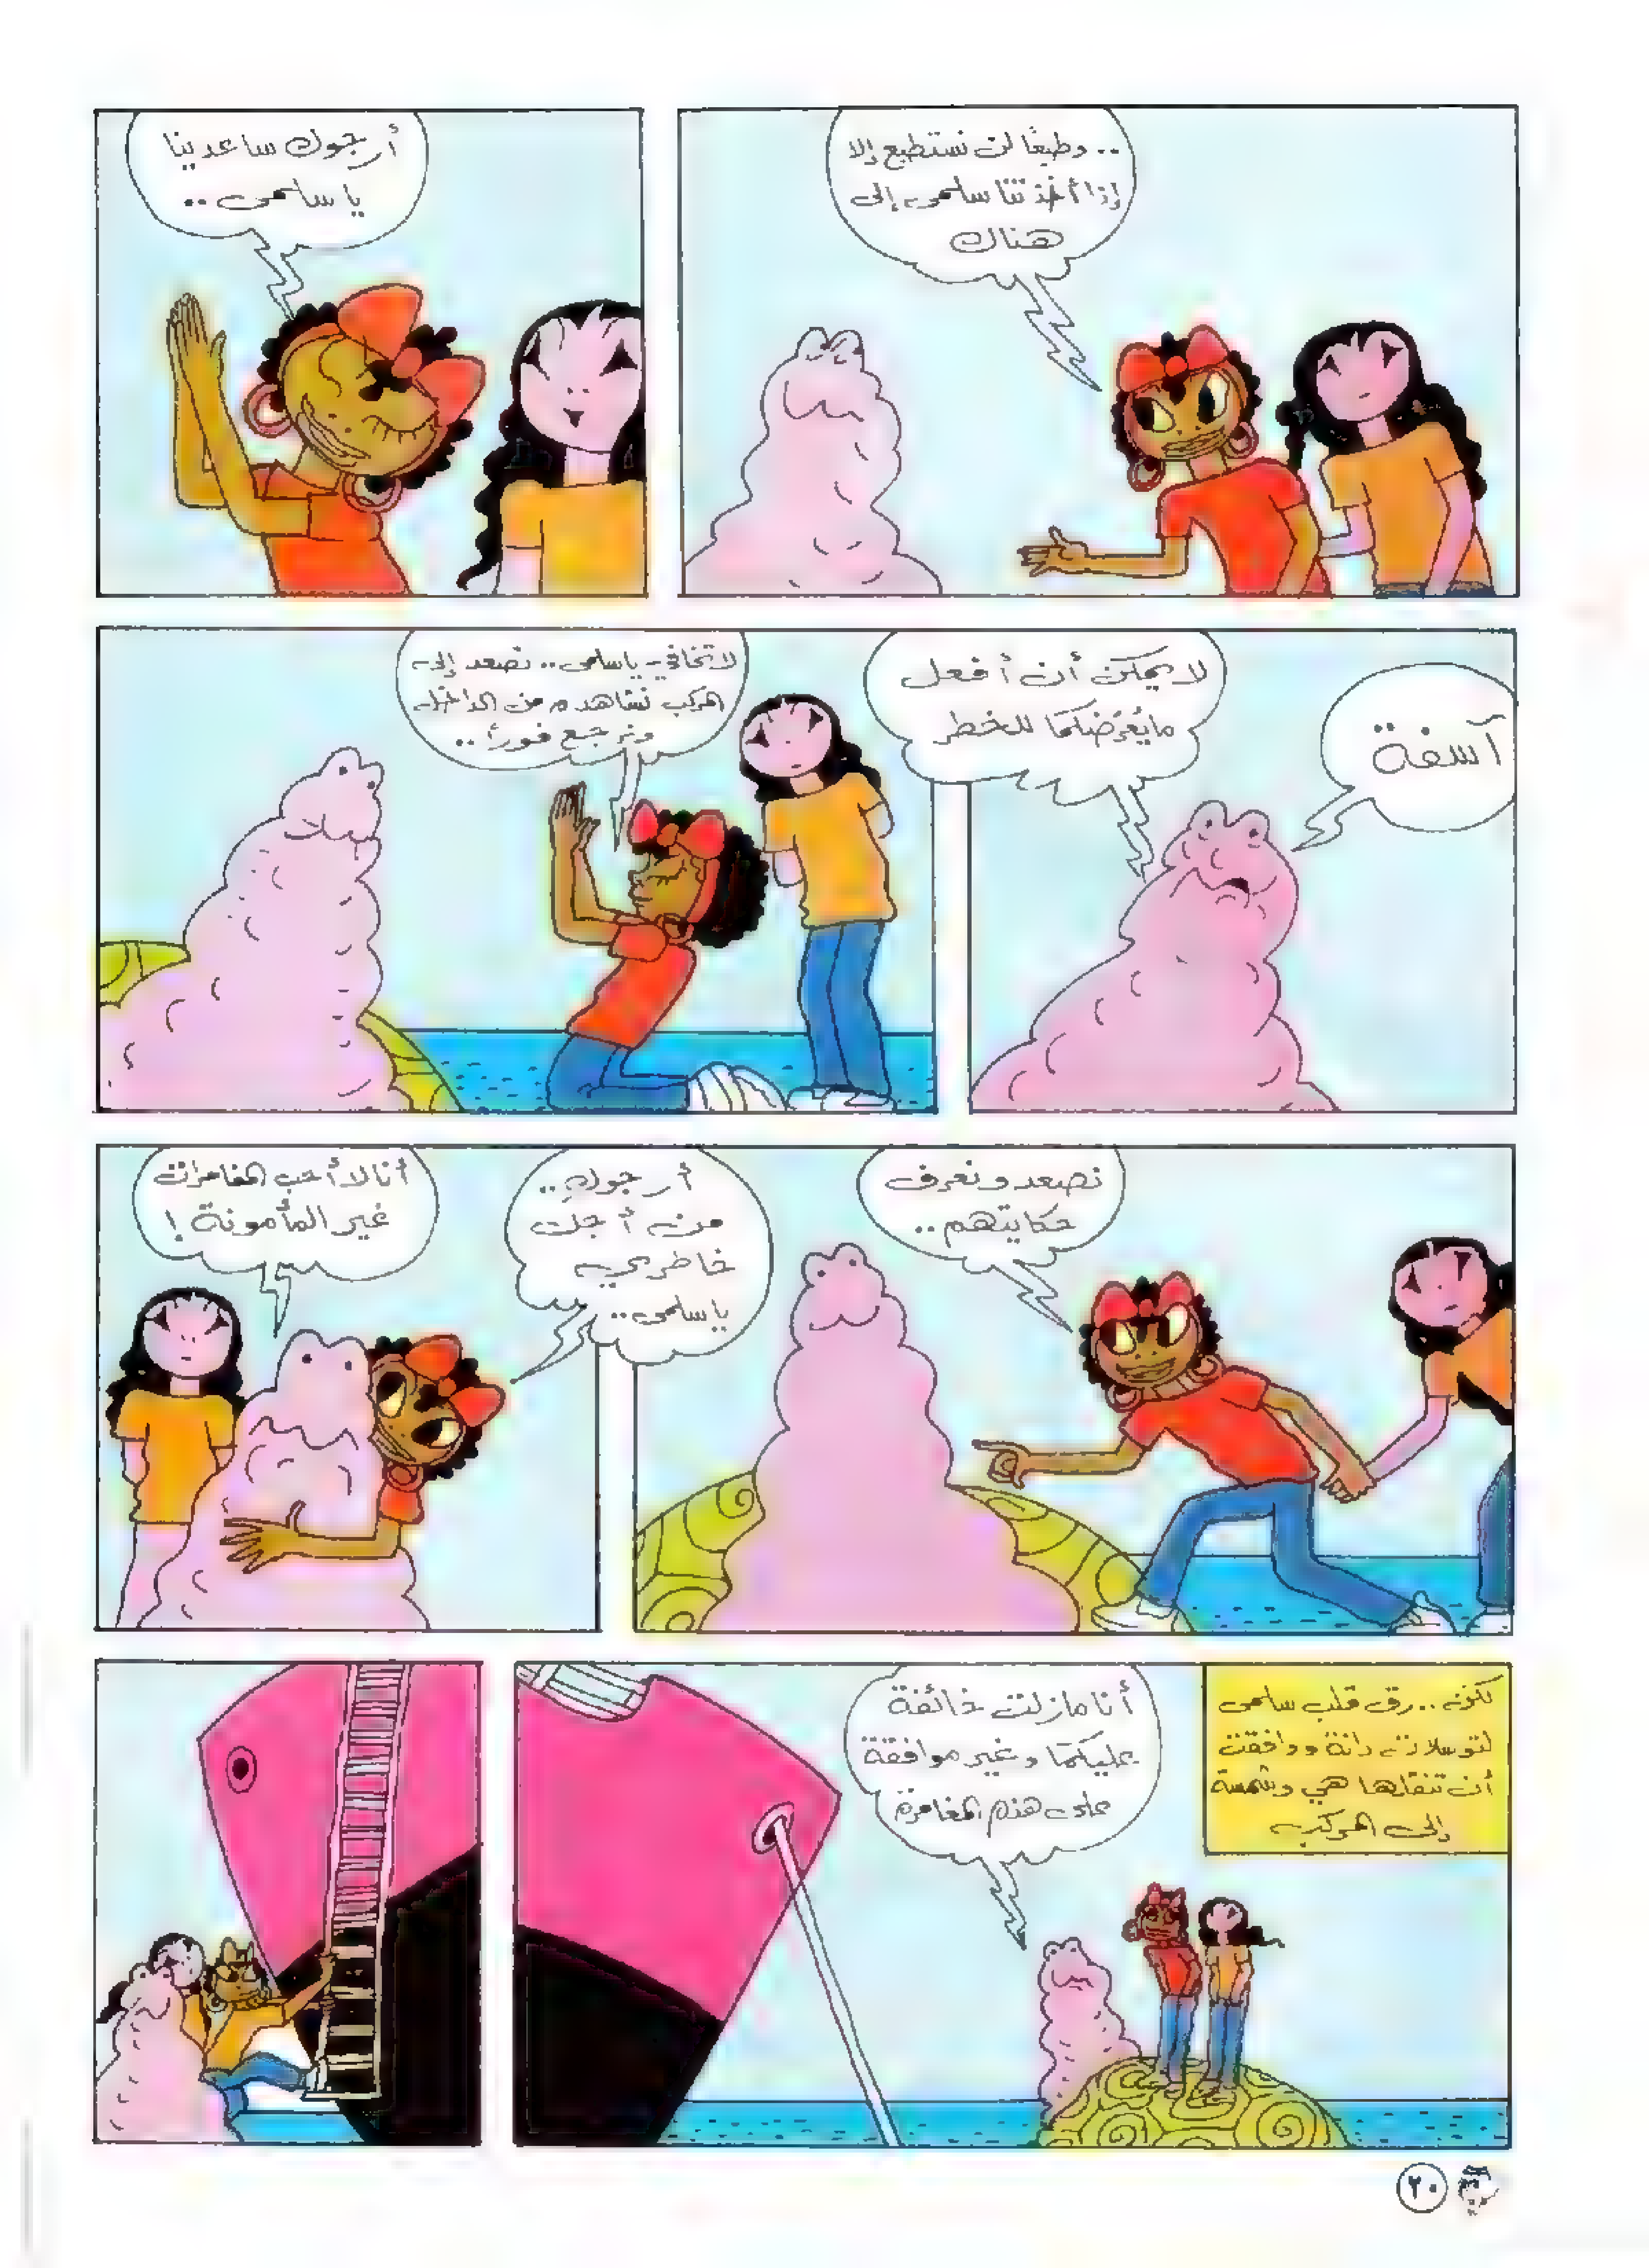 .. وطبعًا لن نستطيع إلا
إذا أخذتنا سلمى إلى
هناك
أرجوك ساعدينا
يا سلمى ..
آسفة
لا يمكن أن أفعل
ما يعرّضكما للخطر
لا تخافي يا سلمى .. نصعد إلى
المركب نشاهده من الداخل
ونرجع فورًا ..
نصعد ونعرف
حكايتهم ..
أرجوكِ ..
من أجل
خاطري
يا سلمى ..
أنا لا أحب المغامرات
غير المأمونة !
لكن .. رق قلب سلمى
لتوسلات دانة ووافقت
أن تنقلها هي وشمسة
إلى المركب
أنا مازلت خائفة
عليكما وغير موافقة
على هذه المغامرة
٢٠